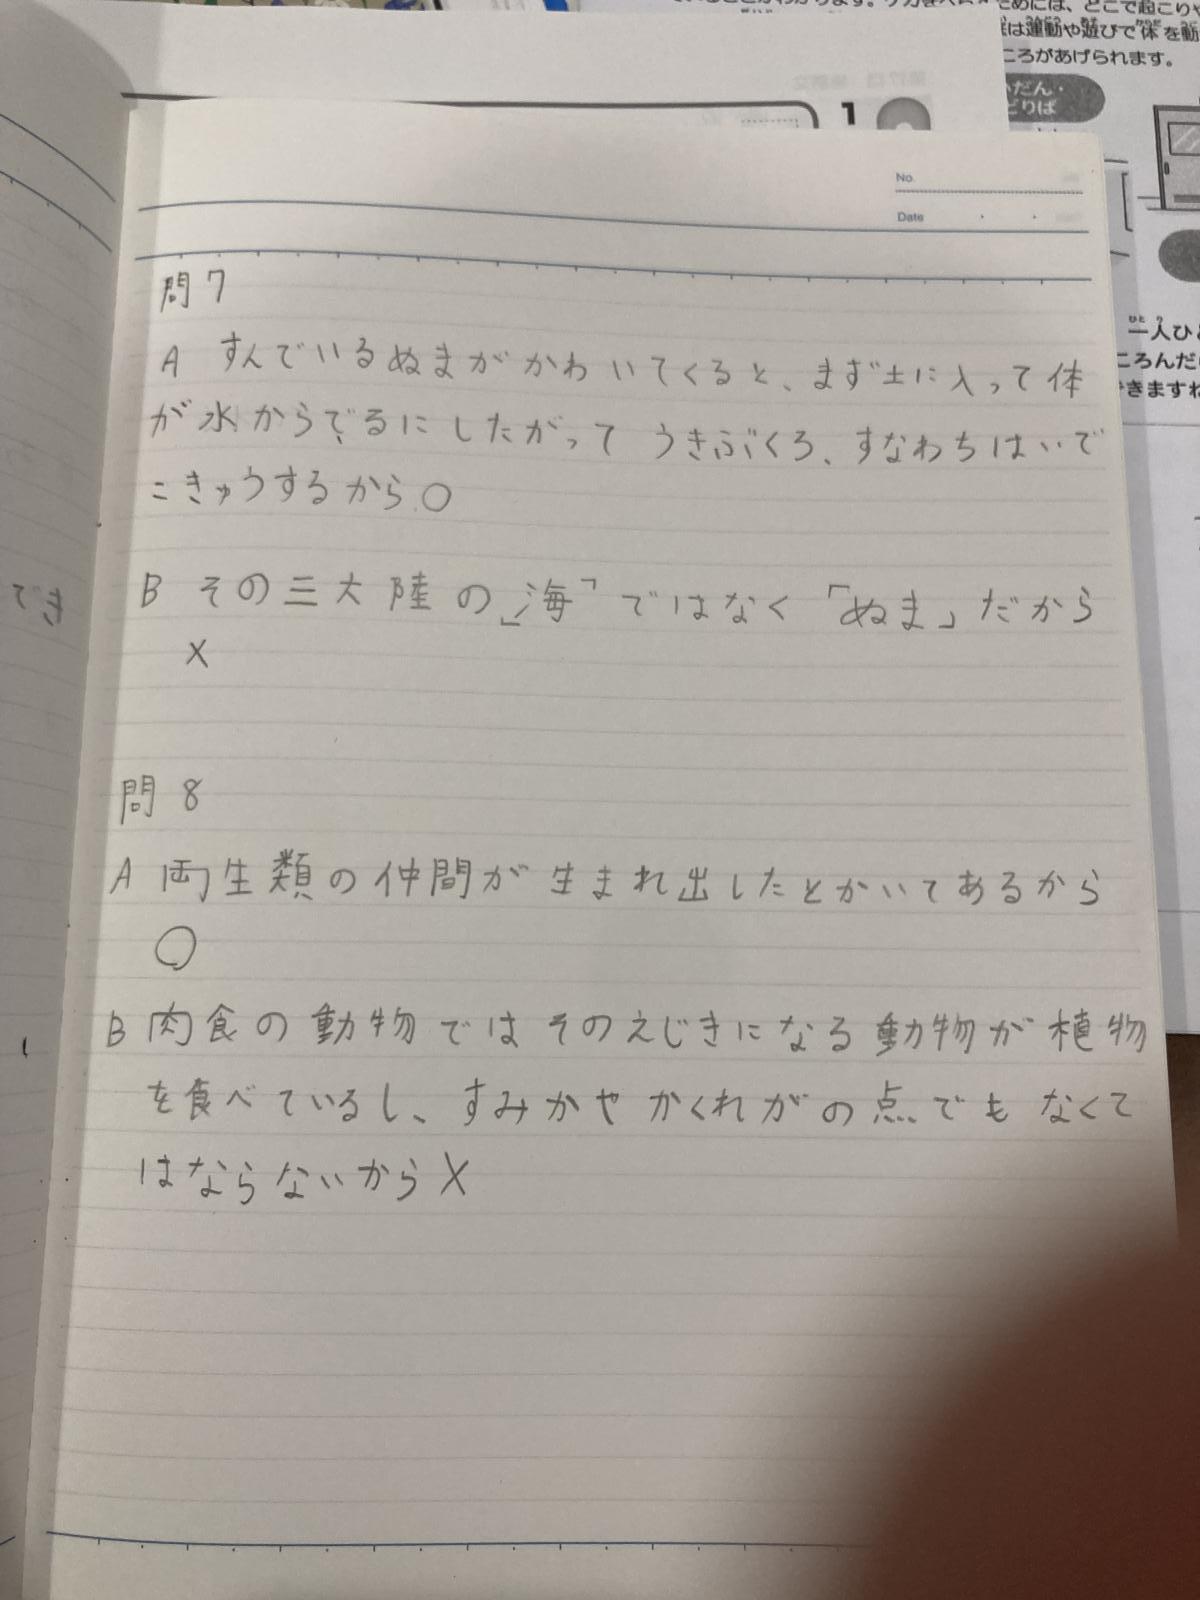 ためには、どこで起こりや
は運動や遊びで体を動
ころがあげられます。
いだん・
どりば
1
No.
Date
一人ひと
ころんだり
できますね
でき
問7
A すんでいるぬまがかわいてくると、まず土に入って体
が水からでるにしたがって うきぶくろ、すなわちはいで
こきゅうするから ○
B その三大陸の「海」ではなく「ぬま」だから
×
問8
A 両生類の仲間が生まれ出したとかいてあるから
○
B 肉食の動物ではそのえじきになる動物が植物
を食べているし、すみかやかくれがの点でもなくて
はならないから×